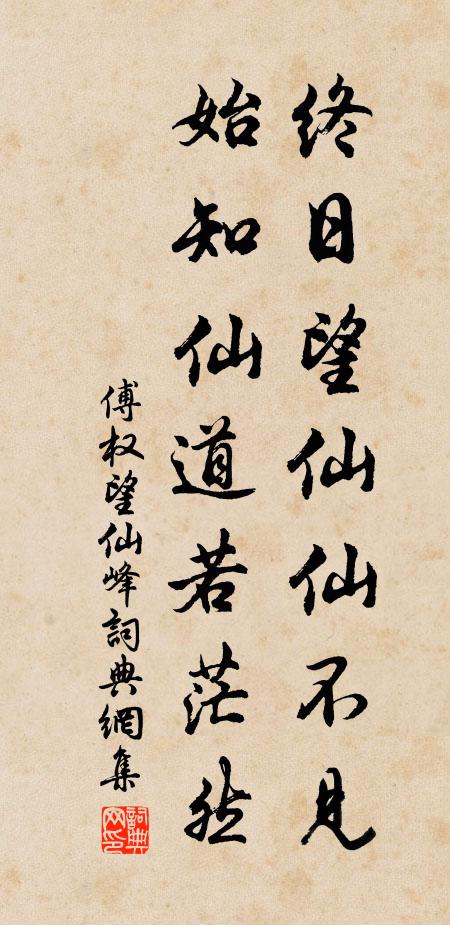 终日望仙仙不见
始知仙道若茫然
傅权望仙峰詞典網集
詞典网印